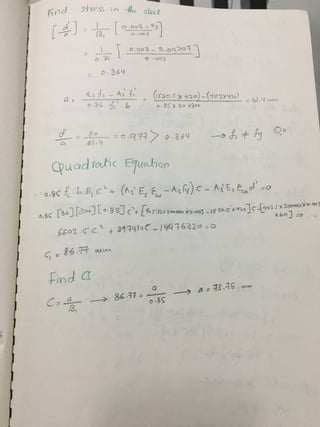 Find stress in the steel
[d'/a] = 1/B₁ [0.003 - εy / 0.003]
= 1/0.85 [0.003 - 0.00207 / 0.003]
= 0.364
a = As fs - As' fs' / 0.85 fc' b = (1520.5 x 420) - (402 x 420) / 0.85 x 30 x 300 = 61.4 mm
d'/a = 60/61.4 = 0.977 > 0.364 → fs ≠ fy
Quadratic Equation
0.85 fc' b B₁ C² + (As' Es εcu - As fy) C - As' Es εcu d' = 0
0.85 [30] [300] [0.85] C² +
6502.5 C² = 0
C₁ = 86.77 mm
Find a
C = a/B₁ → 86.77 = a/0.85 → a = 73.75 mm